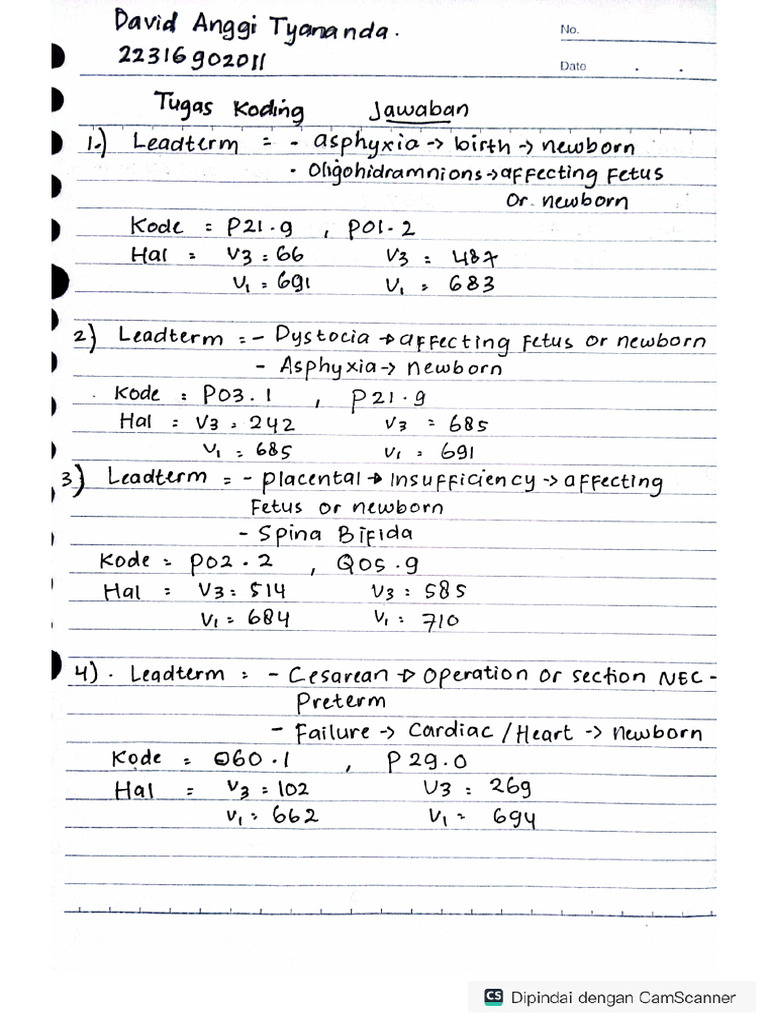 David Anggi Tyananda.
22316902011
No.
Date . .
Tugas Koding Jawaban
1.) Leadterm = - asphyxia → birth → newborn
- Oligohidramnions → affecting Fetus
Or. newborn
Kode = P21.9 , P01.2
Hal = V3 : 66 V3 : 487
V1 = 691 V1 = 683
2) Leadterm = - Dystocia → affecting Fetus or newborn
- Asphyxia → newborn
Kode = P03.1 , P21.9
Hal = V3 = 242 V3 = 685
V1 = 685 V1 = 691
3) Leadterm = - placental → Insufficiency → affecting
Fetus or newborn
- Spina Bifida
Kode = P02.2 , Q05.9
Hal = V3 : 514 V3 : 585
V1 = 684 V1 : 710
4) . Leadterm : - Cesarean → Operation or section NEC -
Preterm
- Failure → Cardiac / Heart → newborn
Kode = O60.1 , P29.0
Hal = V3 = 102 V3 : 269
V1 = 662 V1 = 694
CS Dipindai dengan CamScanner